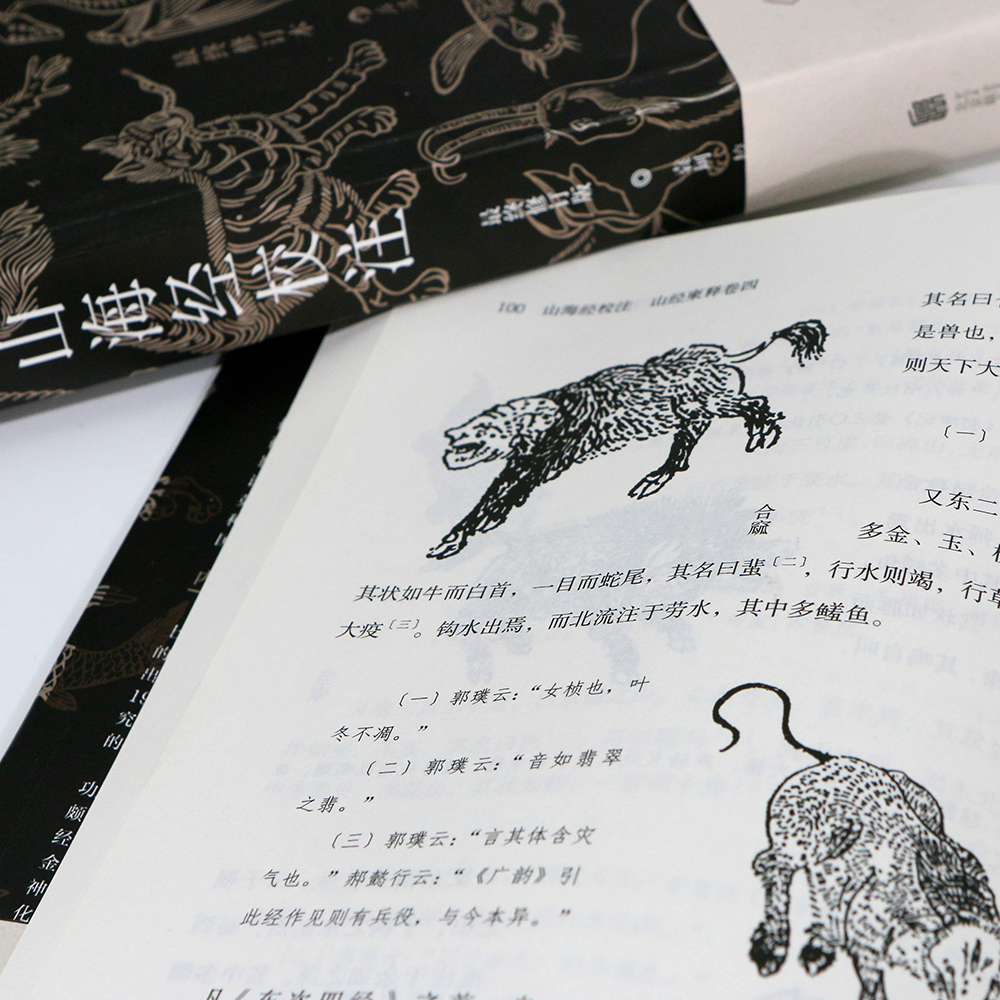 最终修订本
山海经校注
最终修订版
100 山海经校注 山经柬释卷四
其名曰
是兽也，
则天下大
（一）
又东二
多金、玉、
合窳
其状如牛而白首，一目而蛇尾，其名曰蜚〔二〕，行水则竭，行草
大疫〔三〕。钩水出焉，而北流注于劳水，其中多鳝鱼。
（一）郭璞云：“女桢也，叶
冬不凋。”
（二）郭璞云：“音如翡翠
之翡。”
（三）郭璞云：“言其体含灾
气也。”郝懿行云：“《广韵》引
此经作见则有兵役，与今本异。”
凡《东次四经》之首，
的
出
19
究
的
功
颇
经
金
神
化